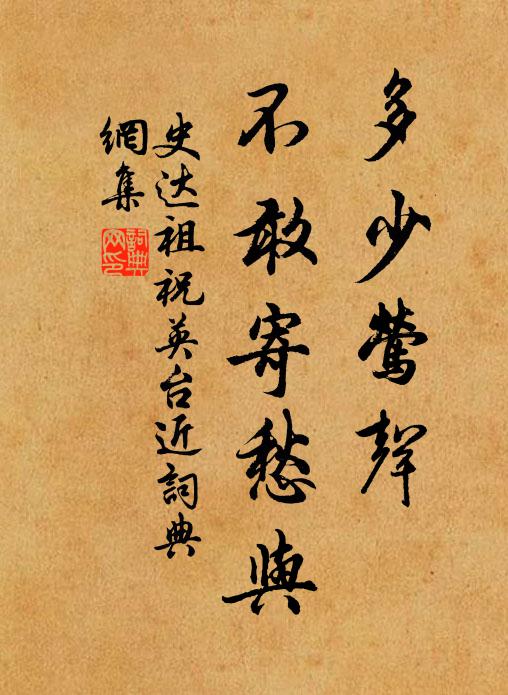 多少莺聲
不敢寄愁與
史达祖祝英台近詞典
網集
詞典
网印